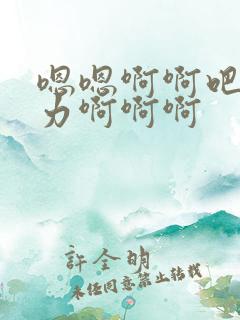 嗯嗯啊啊吧
力啊啊啊
許全明
未經同意禁止轉載